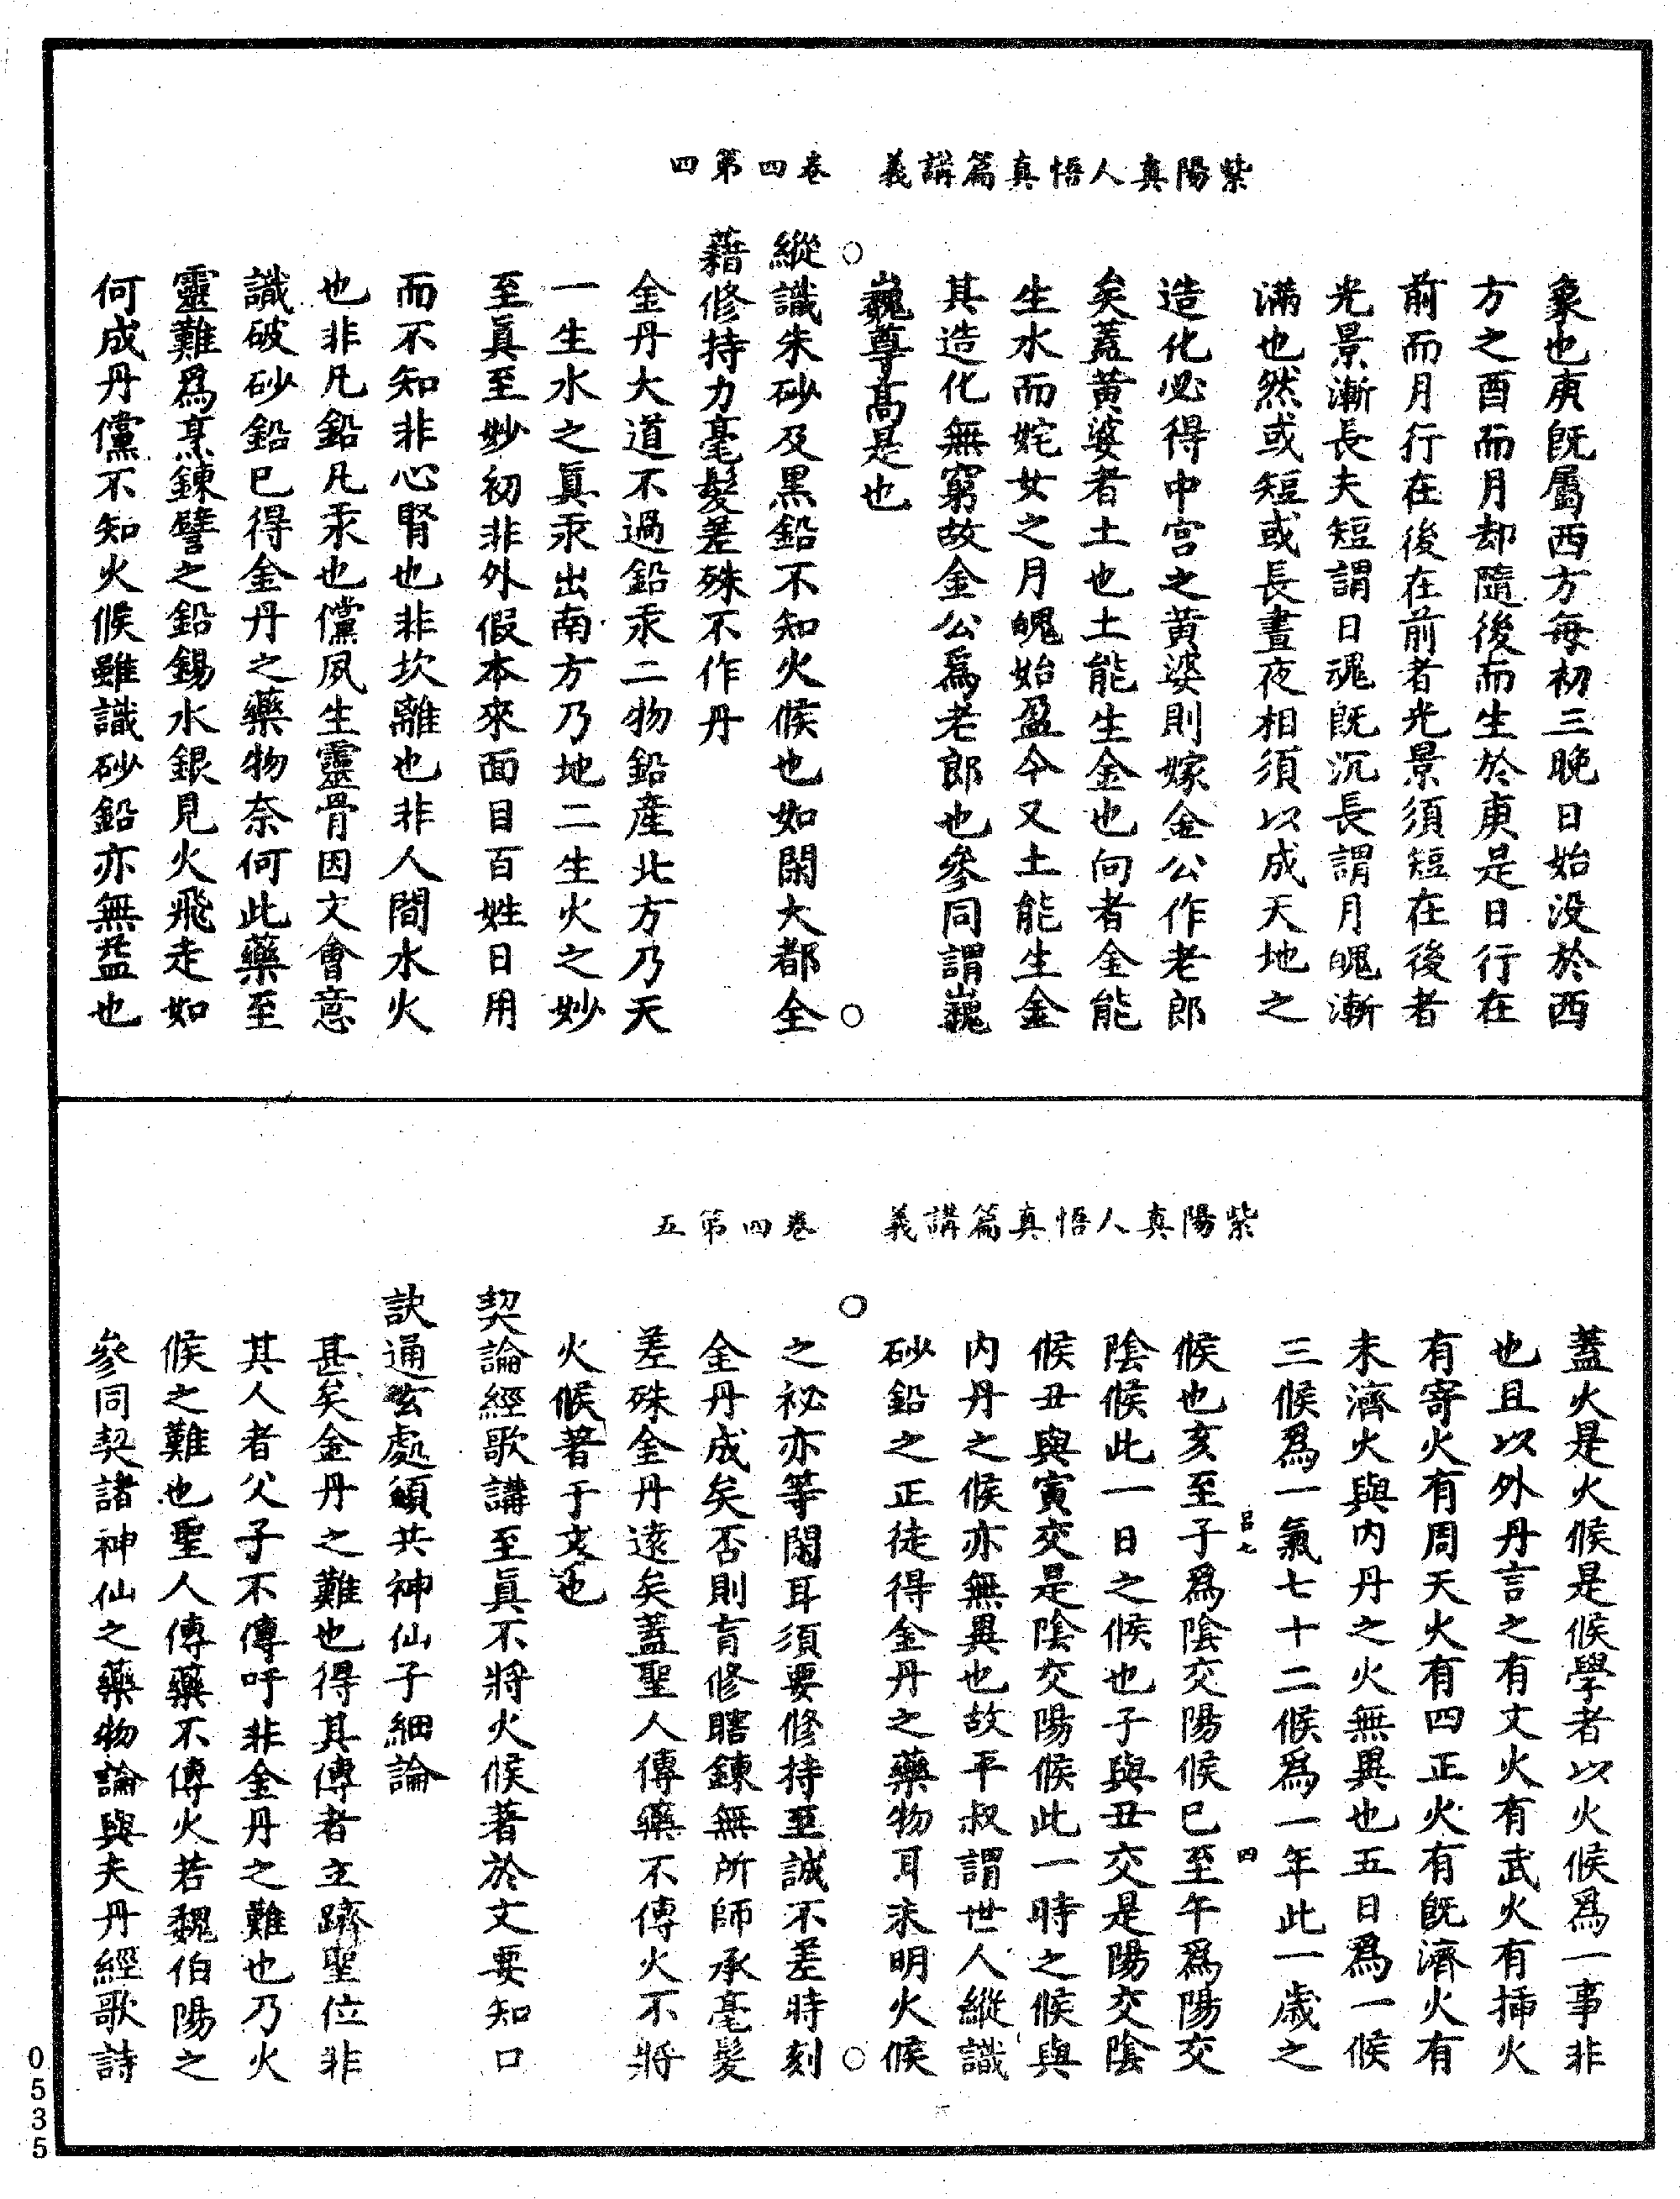 紫陽真人悟真篇講義　卷四第四
象也庚旣屬西方每初三晚日始没於西
方之酉而月却隨後而生於庚是日行在
前而月行在後在前者光景須短在後者
光景漸長夫短謂日魂旣沉長謂月魄漸
滿也然或短或長晝夜相須以成天地之
造化必得中宫之黄婆則嫁金公作老郎
矣蓋黄婆者土也土能生金也向者金能
生水而姹女之月魄始盈今又土能生金
其造化無窮故金公爲老郎也參同謂巍
巍尊高是也
○
縱識朱砂及黑鉛不知火候也如閑大都全
藉修持力毫髮差殊不作丹
金丹大道不過鉛汞二物鉛産北方乃天
一生水之眞汞出南方乃地二生火之妙
至眞至妙初非外假本來面目百姓日用
而不知非心腎也非坎離也非人間水火
也非凡鉛凡汞也儻夙生靈骨因文會意
識破砂鉛巳得金丹之藥物奈何此藥至
靈難爲烹鍊譬之鉛錫水銀見火飛走如
何成丹儻不知火候雖識砂鉛亦無益也
紫陽真人悟真篇講義　卷四第五
蓋火是火候是候學者以火候爲一事非
也且以外丹言之有文火有武火有插火
有寄火有周天火有四正火有旣濟火有
未濟火與内丹之火無異也五日爲一候
三候爲一氣七十二候爲一年此一歲之
呂七　四
候也亥至子爲陰交陽候巳至午爲陽交
陰候此一日之候也子與丑交是陽交陰
候丑與寅交是陰交陽候此一時之候與
内丹之候亦無異也故平叔謂世人縱識
砂鉛之正徒得金丹之藥物耳未明火候
之祕亦等閑耳須要修持至誠不差時刻
金丹成矣否則盲修瞎鍊無所師承毫髮
差殊金丹遠矣蓋聖人傳藥不傳火不將
火候著于文也
契論經歌講至眞不將火候著於文要知口
訣通玄處須共神仙子細論
甚矣金丹之難也得其傳者立躋聖位非
其人者父子不傳吁非金丹之難也乃火
候之難也聖人傳藥不傳火若魏伯陽之
參同契諸神仙之藥物論與夫丹經歌詩
0535